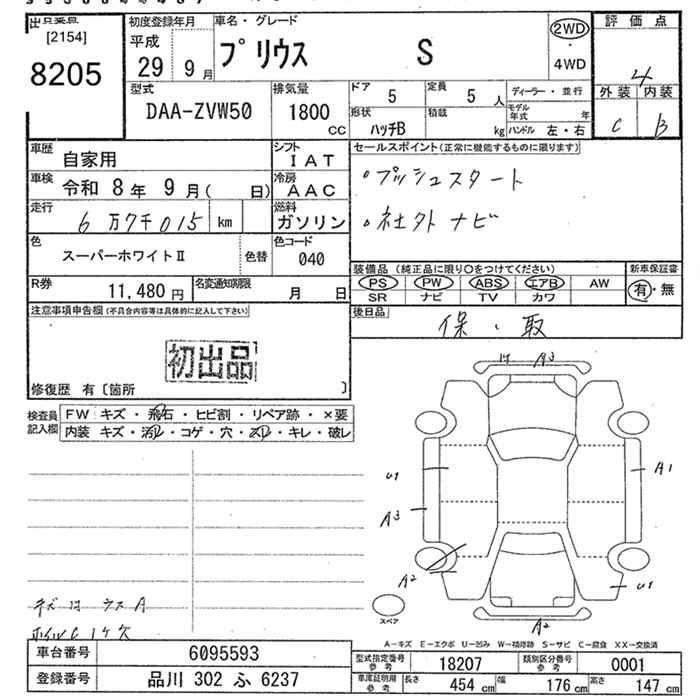 [2154]
8205
初度登録年月
平成
29 9月
車名・グレード
プリウス S
2WD
・
4WD
評価点
4
外装 内装
C B
型式
DAA-ZVW50
排気量
1800
CC
ドア 5
定員 5 人
ディーラー・並行
形状 ハッチB
積載 kg
モデル年式 年
ハンドル 左・右
車歴 自家用
シフト IAT
車検 令和 8年 9月( 日)
冷房 AAC
走行 6万7千015 km
燃料 ガソリン
色 スーパーホワイトⅡ
色替
色コード 040
セールスポイント(正常に機能するものに限ります)
・プッシュスタート
・社外ナビ
R券 11,480円
名変通知期限 月 日
装備品(純正品に限り○をつけてください)
新車保証書
PS PW ABS エアB AW
有・無
SR ナビ TV カワ
後日品
保・取
注意事項申告欄(不具合内容等は具体的に記入して下さい)
初出品
修復歴 有〔箇所 〕
検査員記入欄
FW キズ・飛石・ヒビ割・リペア跡・×要
内装 キズ・汚レ・コゲ・穴・スレ・キレ・破レ
A3
U1
A1
A3
A2
U1
A2
スペア
A-キズ E-エクボ U-凹み W-補修跡 S-サビ C-腐食 XX-交換済
車台番号 6095593
登録番号 品川 302 ふ 6237
型式指定番号 参考 18207
類別区分番号 参考 0001
車庫証明用 参考 長さ 454 cm 幅 176 cm 高さ 147 cm